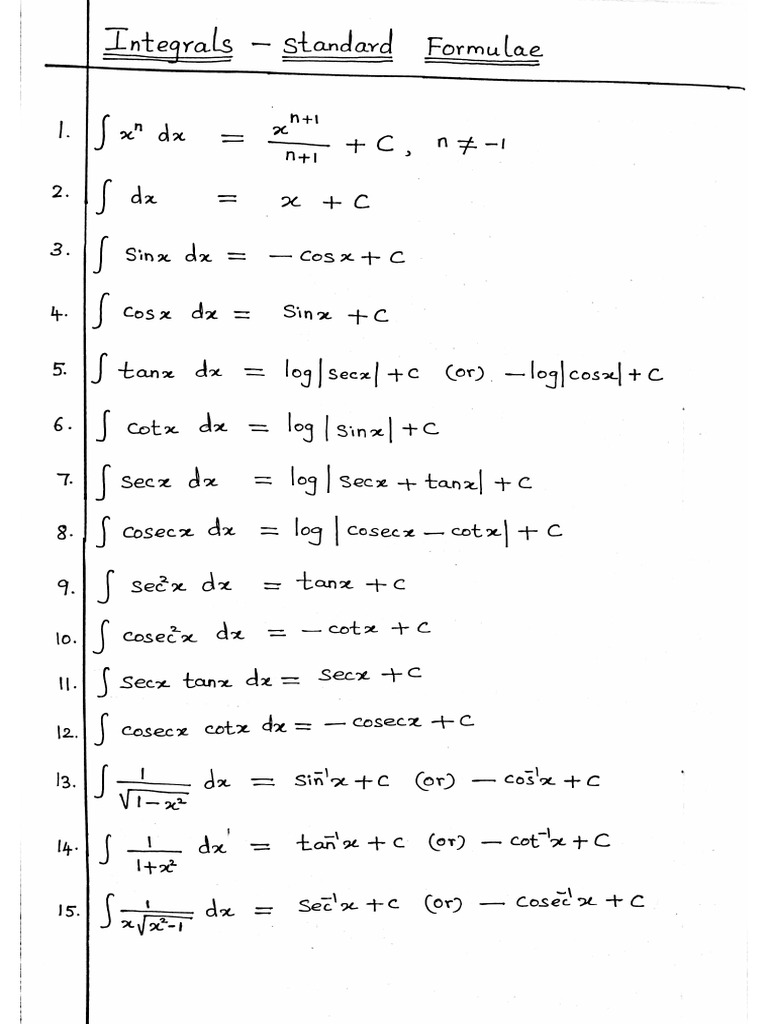 Integrals – Standard Formulae
1. ∫ xⁿ dx = xⁿ⁺¹/n+1 + C, n ≠ -1
2. ∫ dx = x + C
3. ∫ Sinx dx = – Cosx + C
4. ∫ Cosx dx = Sinx + C
5. ∫ tanx dx = log|secx| + C (or) – log|cosx| + C
6. ∫ Cotx dx = log |sinx| + C
7. ∫ Secx dx = log| Secx + tanx| + C
8. ∫ Cosecx dx = log |Cosecx – Cotx| + C
9. ∫ Sec²x dx = tanx + C
10. ∫ Cosec²x dx = – Cotx + C
11. ∫ Secx tanx dx = Secx + C
12. ∫ Cosecx Cotx dx = – Cosecx + C
13. ∫ 1/√1–x² dx = Sin⁻¹x + C (or) – Cos⁻¹x + C
14. ∫ 1/1+x² dx = tan⁻¹x + C (or) – Cot⁻¹x + C
15. ∫ 1/x√x²-1 dx = Sec⁻¹x + C (or) – Cosec⁻¹x + C